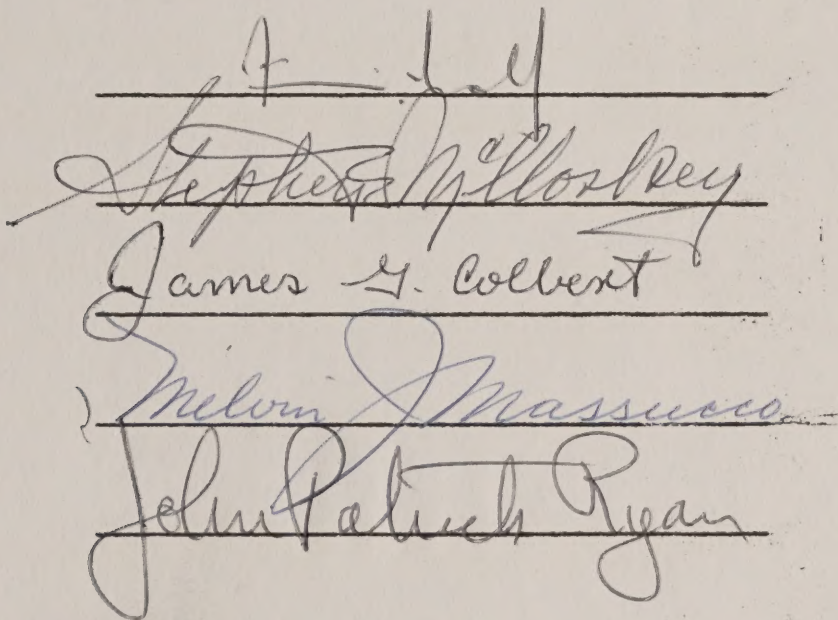 Stephen E. McCloskey
James G. Colbert
Melvin J Massucco
John Patrick Ryan